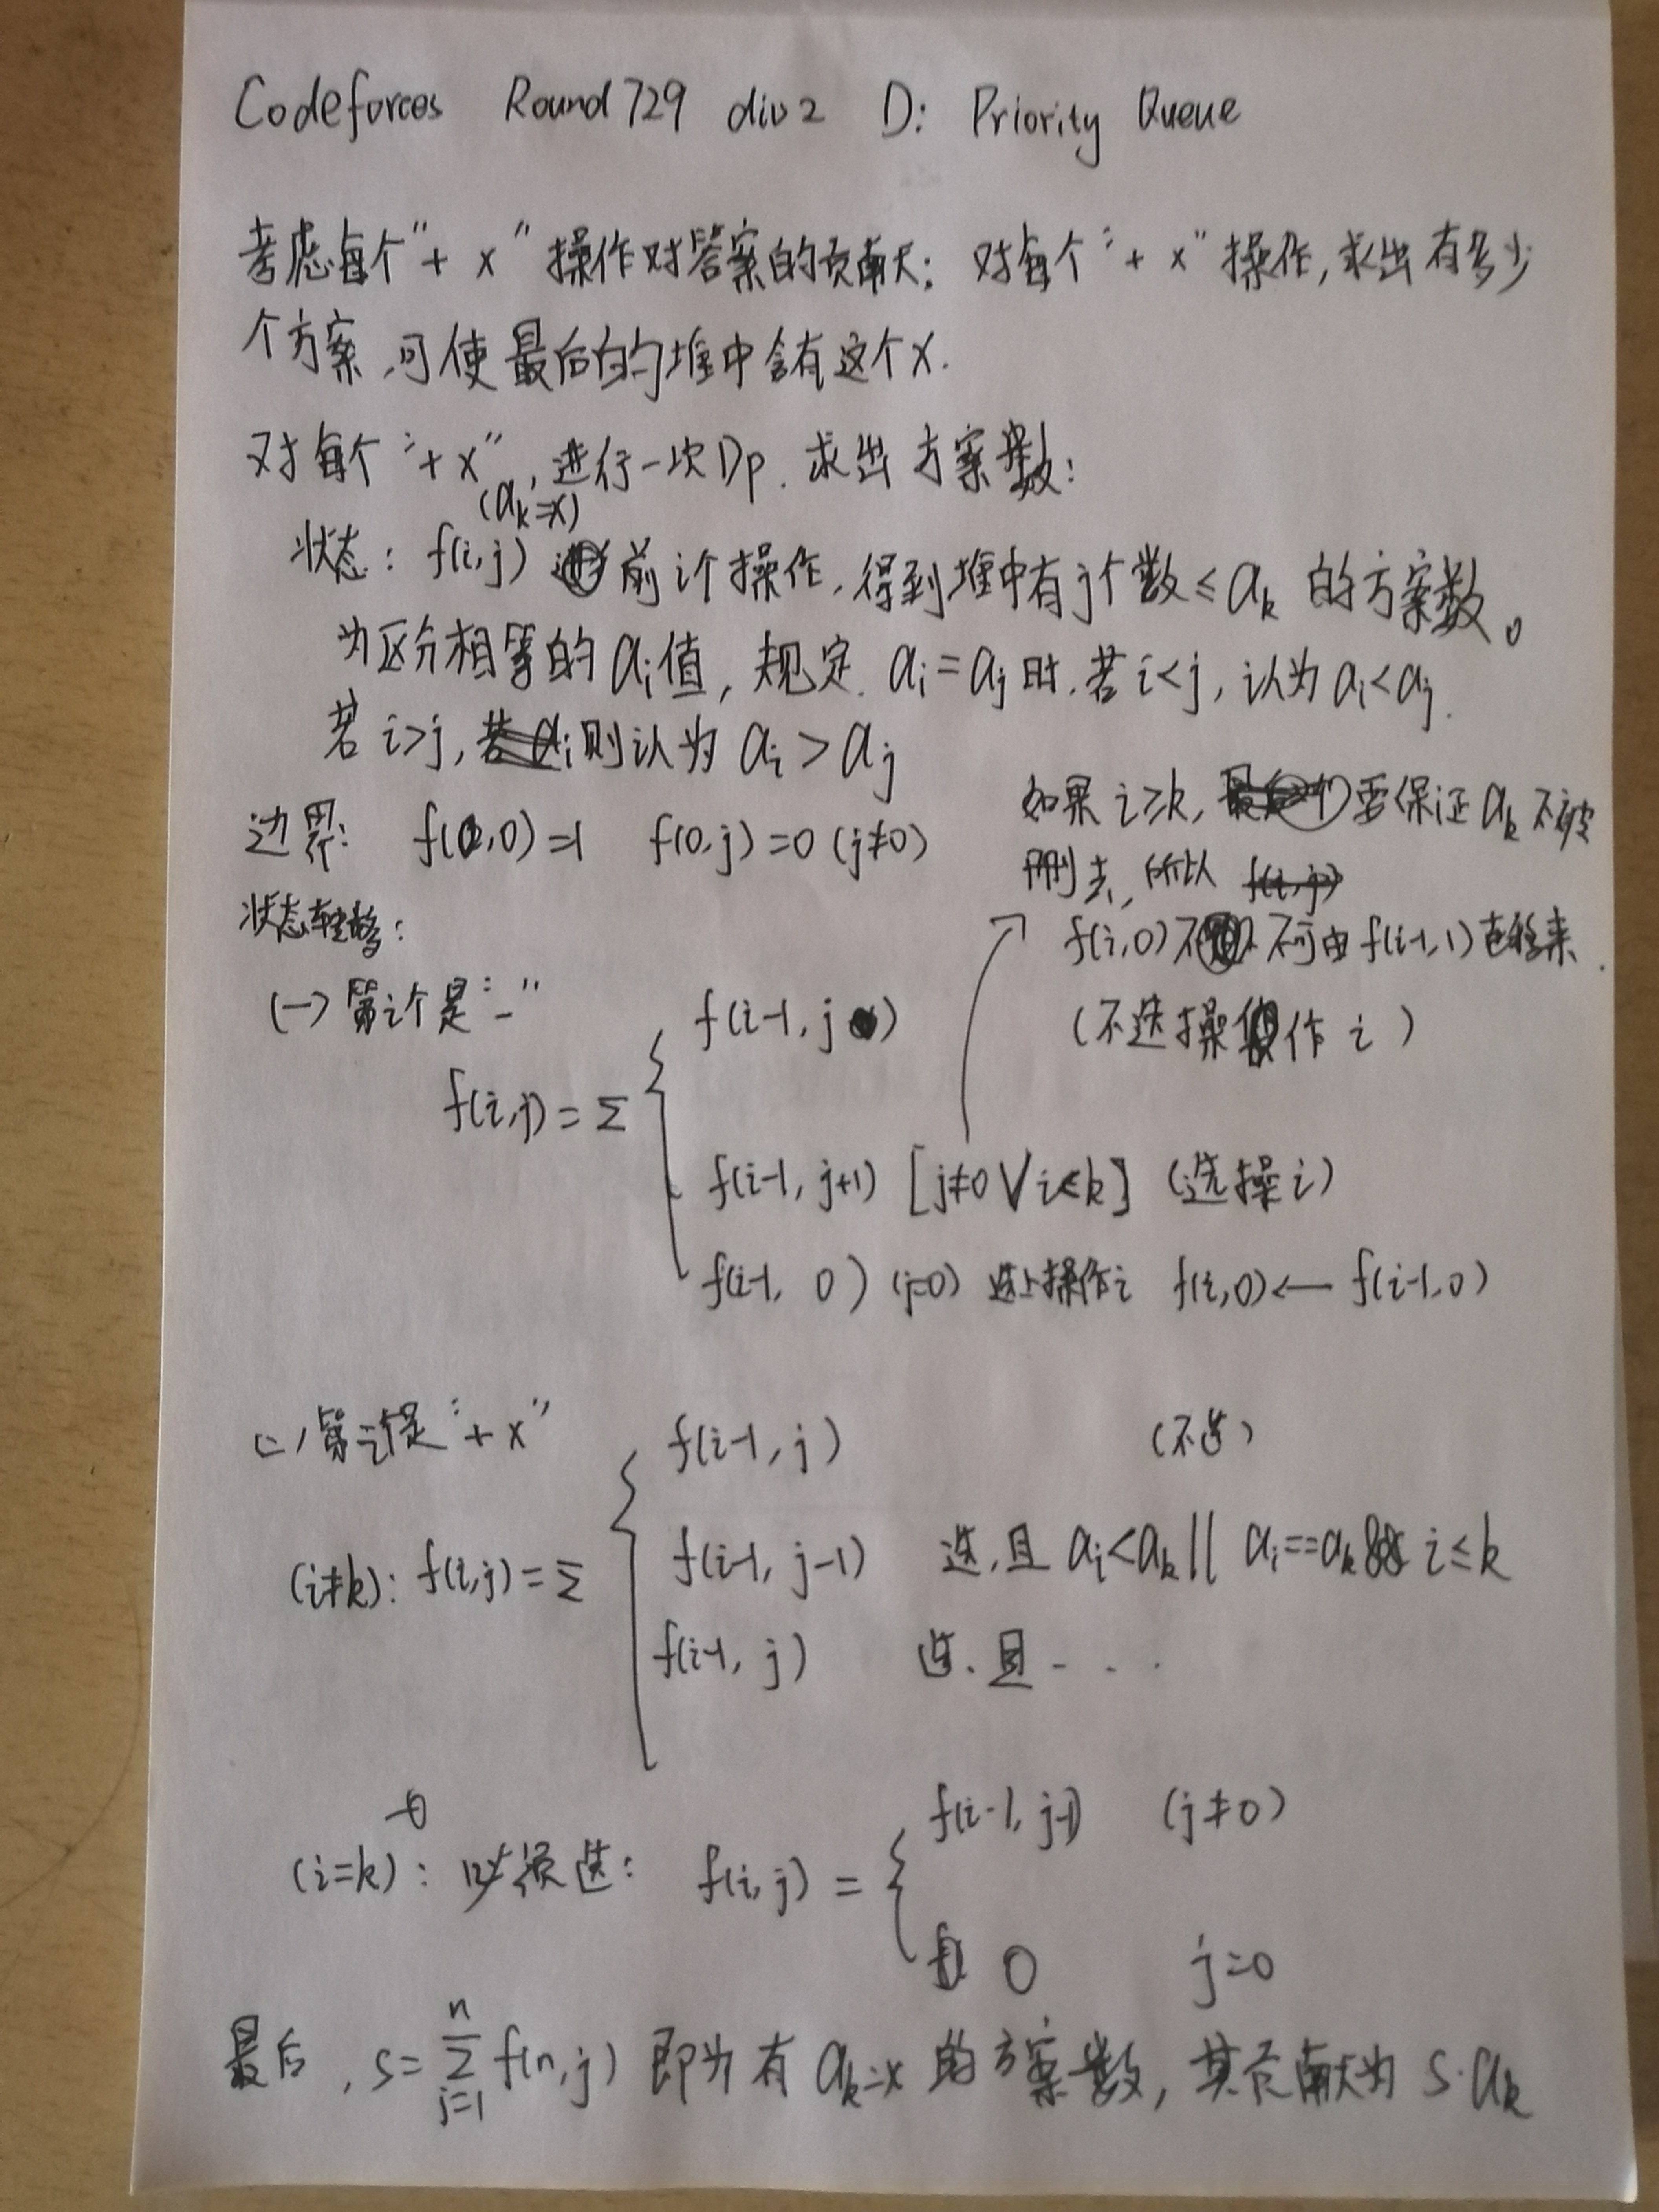 Codeforces Round 729 div2 D: Priority Queue
考虑每个"+ x"操作对答案的贡献: 对每个"+ x"操作,求出有多少
个方案,可使最后的堆中含有这个x.
对每个"+ x",进行一次Dp. 求出方案数:
(a_k=x)
状态: f(i,j) 前i个操作,得到堆中有j个数≤a_k 的方案数。
为区分相等的a_i值,规定.a_i=a_j时.若i<j,认为a_i<a_j.
若i>j,则认为a_i>a_j
边界: f(0,0)=1 f(0,j)=0 (j≠0)
如果i≥k,要保证a_k不被
删去,所以
f(i,0)不可由f(i-1,1)转移来.
状态转移:
(一)第i个是"-"
f(i-1,j) (不选操作i)
f(i,j)=Σ
f(i-1,j+1) [j≠0∨i≤k] (选操i)
f(i-1,0) (j=0) 选上操作i f(i,0)← f(i-1,0)
(二)第i个是"+ x"
f(i-1,j) (不选)
(i≠k): f(i,j)=Σ
f(i-1,j-1) 选,且a_i<a_k|| a_i==a_k&& i≤k
f(i-1,j) 选、且...
f(i-1,j-1) (j≠0)
(i=k): 必须选: f(i,j)=
0 j=0
最后,s=Σ_{j=1}^{n} f(n,j) 即为有a_k=x的方案数,其贡献为s·a_k